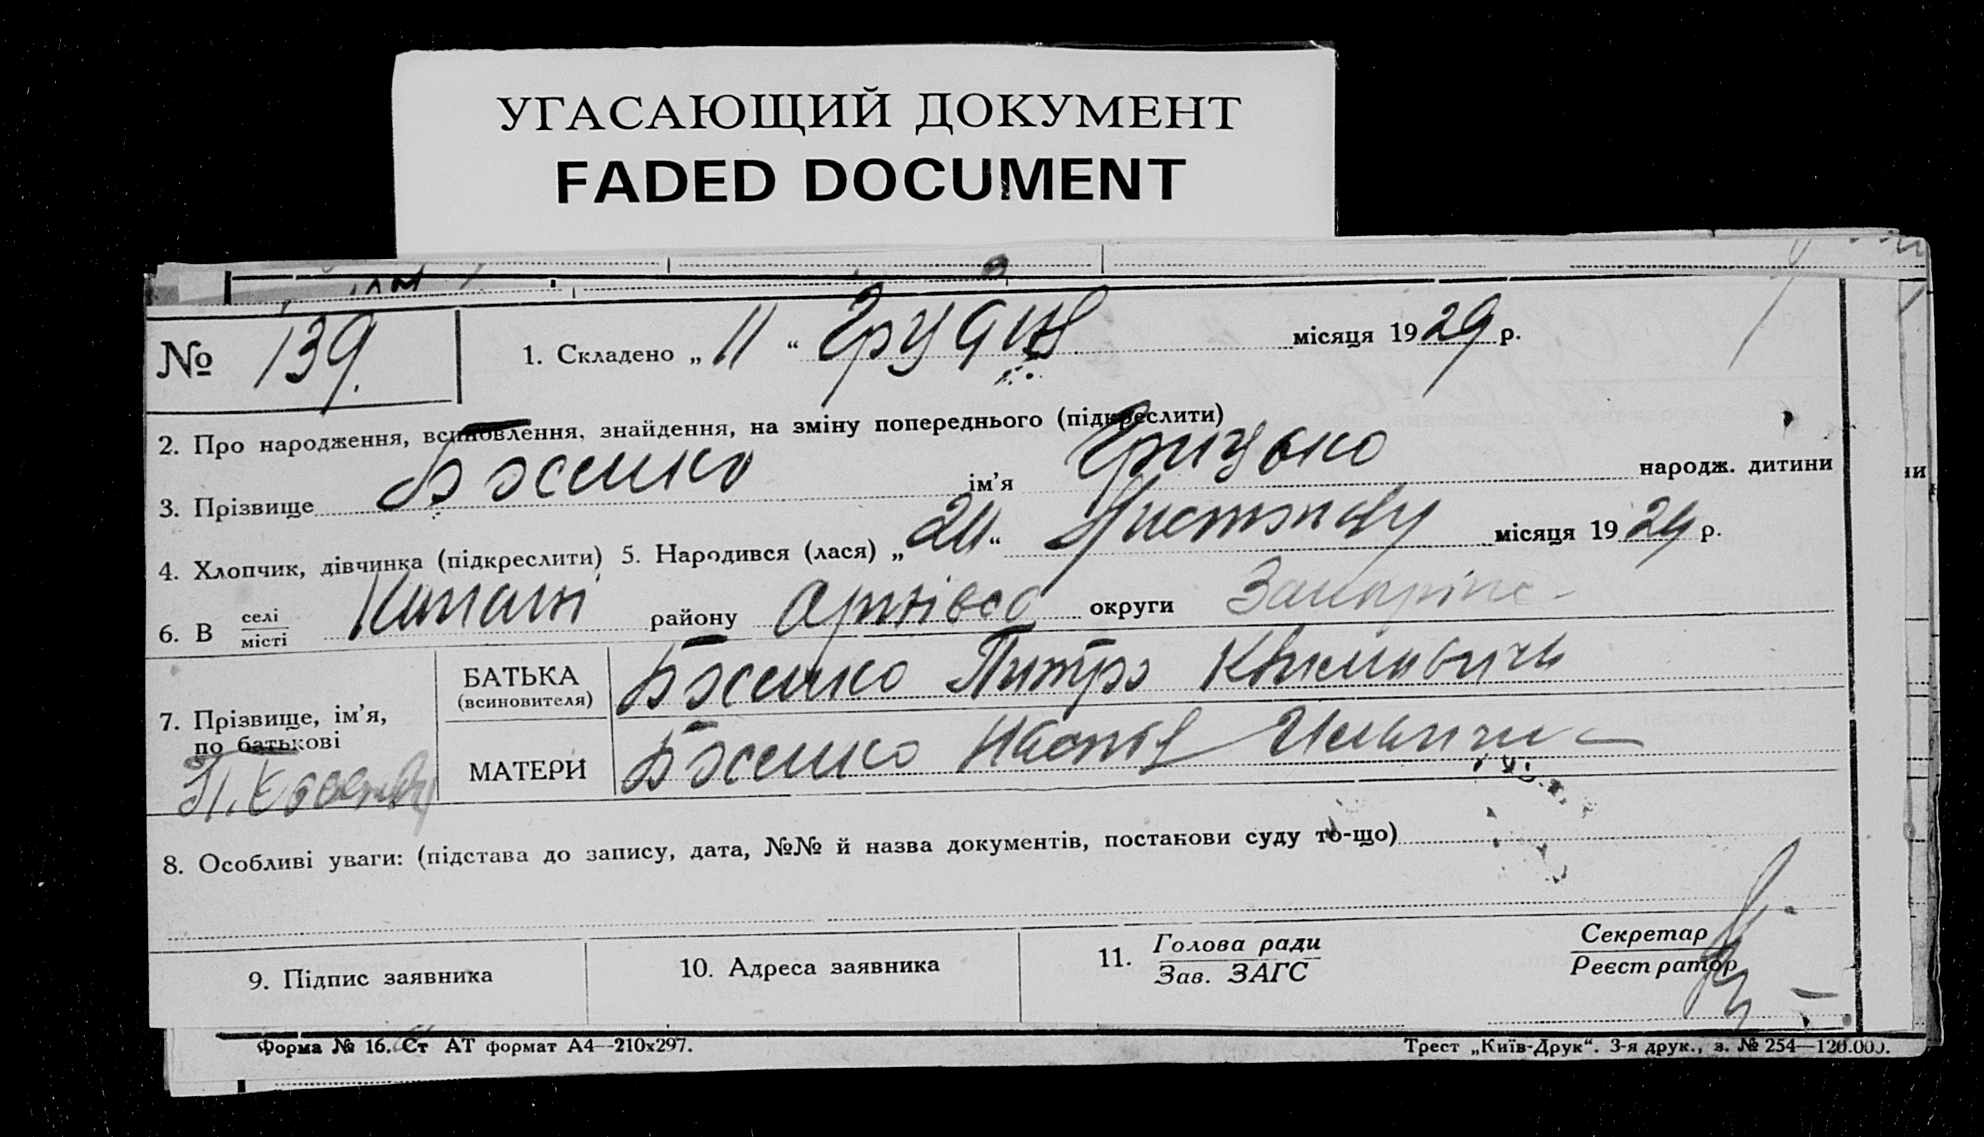 УГАСАЮЩИЙ ДОКУМЕНТ
FADED DOCUMENT
№ 139.
1. Складено „ 11 “ Грудня місяця 1929 р.
2. Про народження, всиновлення, знайдення, на зміну попереднього (підкреслити)
3. Прізвище Боженко ім’я Грицько народж. дитини
4. Хлопчик, дівчинка (підкреслити) 5. Народився (лася) „ “ місяця 1929 р.
6. В селі місті району округи
7. Прізвище, ім’я, по батькові
БАТЬКА (всиновителя) Боженко Питро
МАТЕРИ Боженко Настя
8. Особливі уваги: (підстава до запису, дата, №№ й назва документів, постанови суду то-що)
9. Підпис заявника
10. Адреса заявника
11. Голова ради Зав. ЗАГС
Секретар Реєстратор
Форма № 16. Ст АТ формат А4—210х297.
Трест „Київ-Друк“. 3-я друк., з. № 254—120.000.